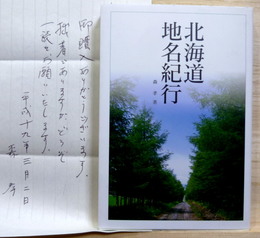 御購入ありがとうございます。
拙著でありますが、どうぞ
一読をお願いいたします。
平成十九年三月二日
森 孝
北海道
地名紀行